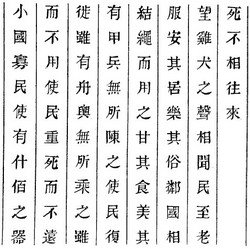 小國寡民使有什佰之器
而不用使民重死而不遠
徙雖有舟輿無所乘之雖
有甲兵無所陳之使民復
結繩而用之甘其食美其
服安其居樂其俗鄰國相
望雞犬之聲相聞民至老
死不相往來